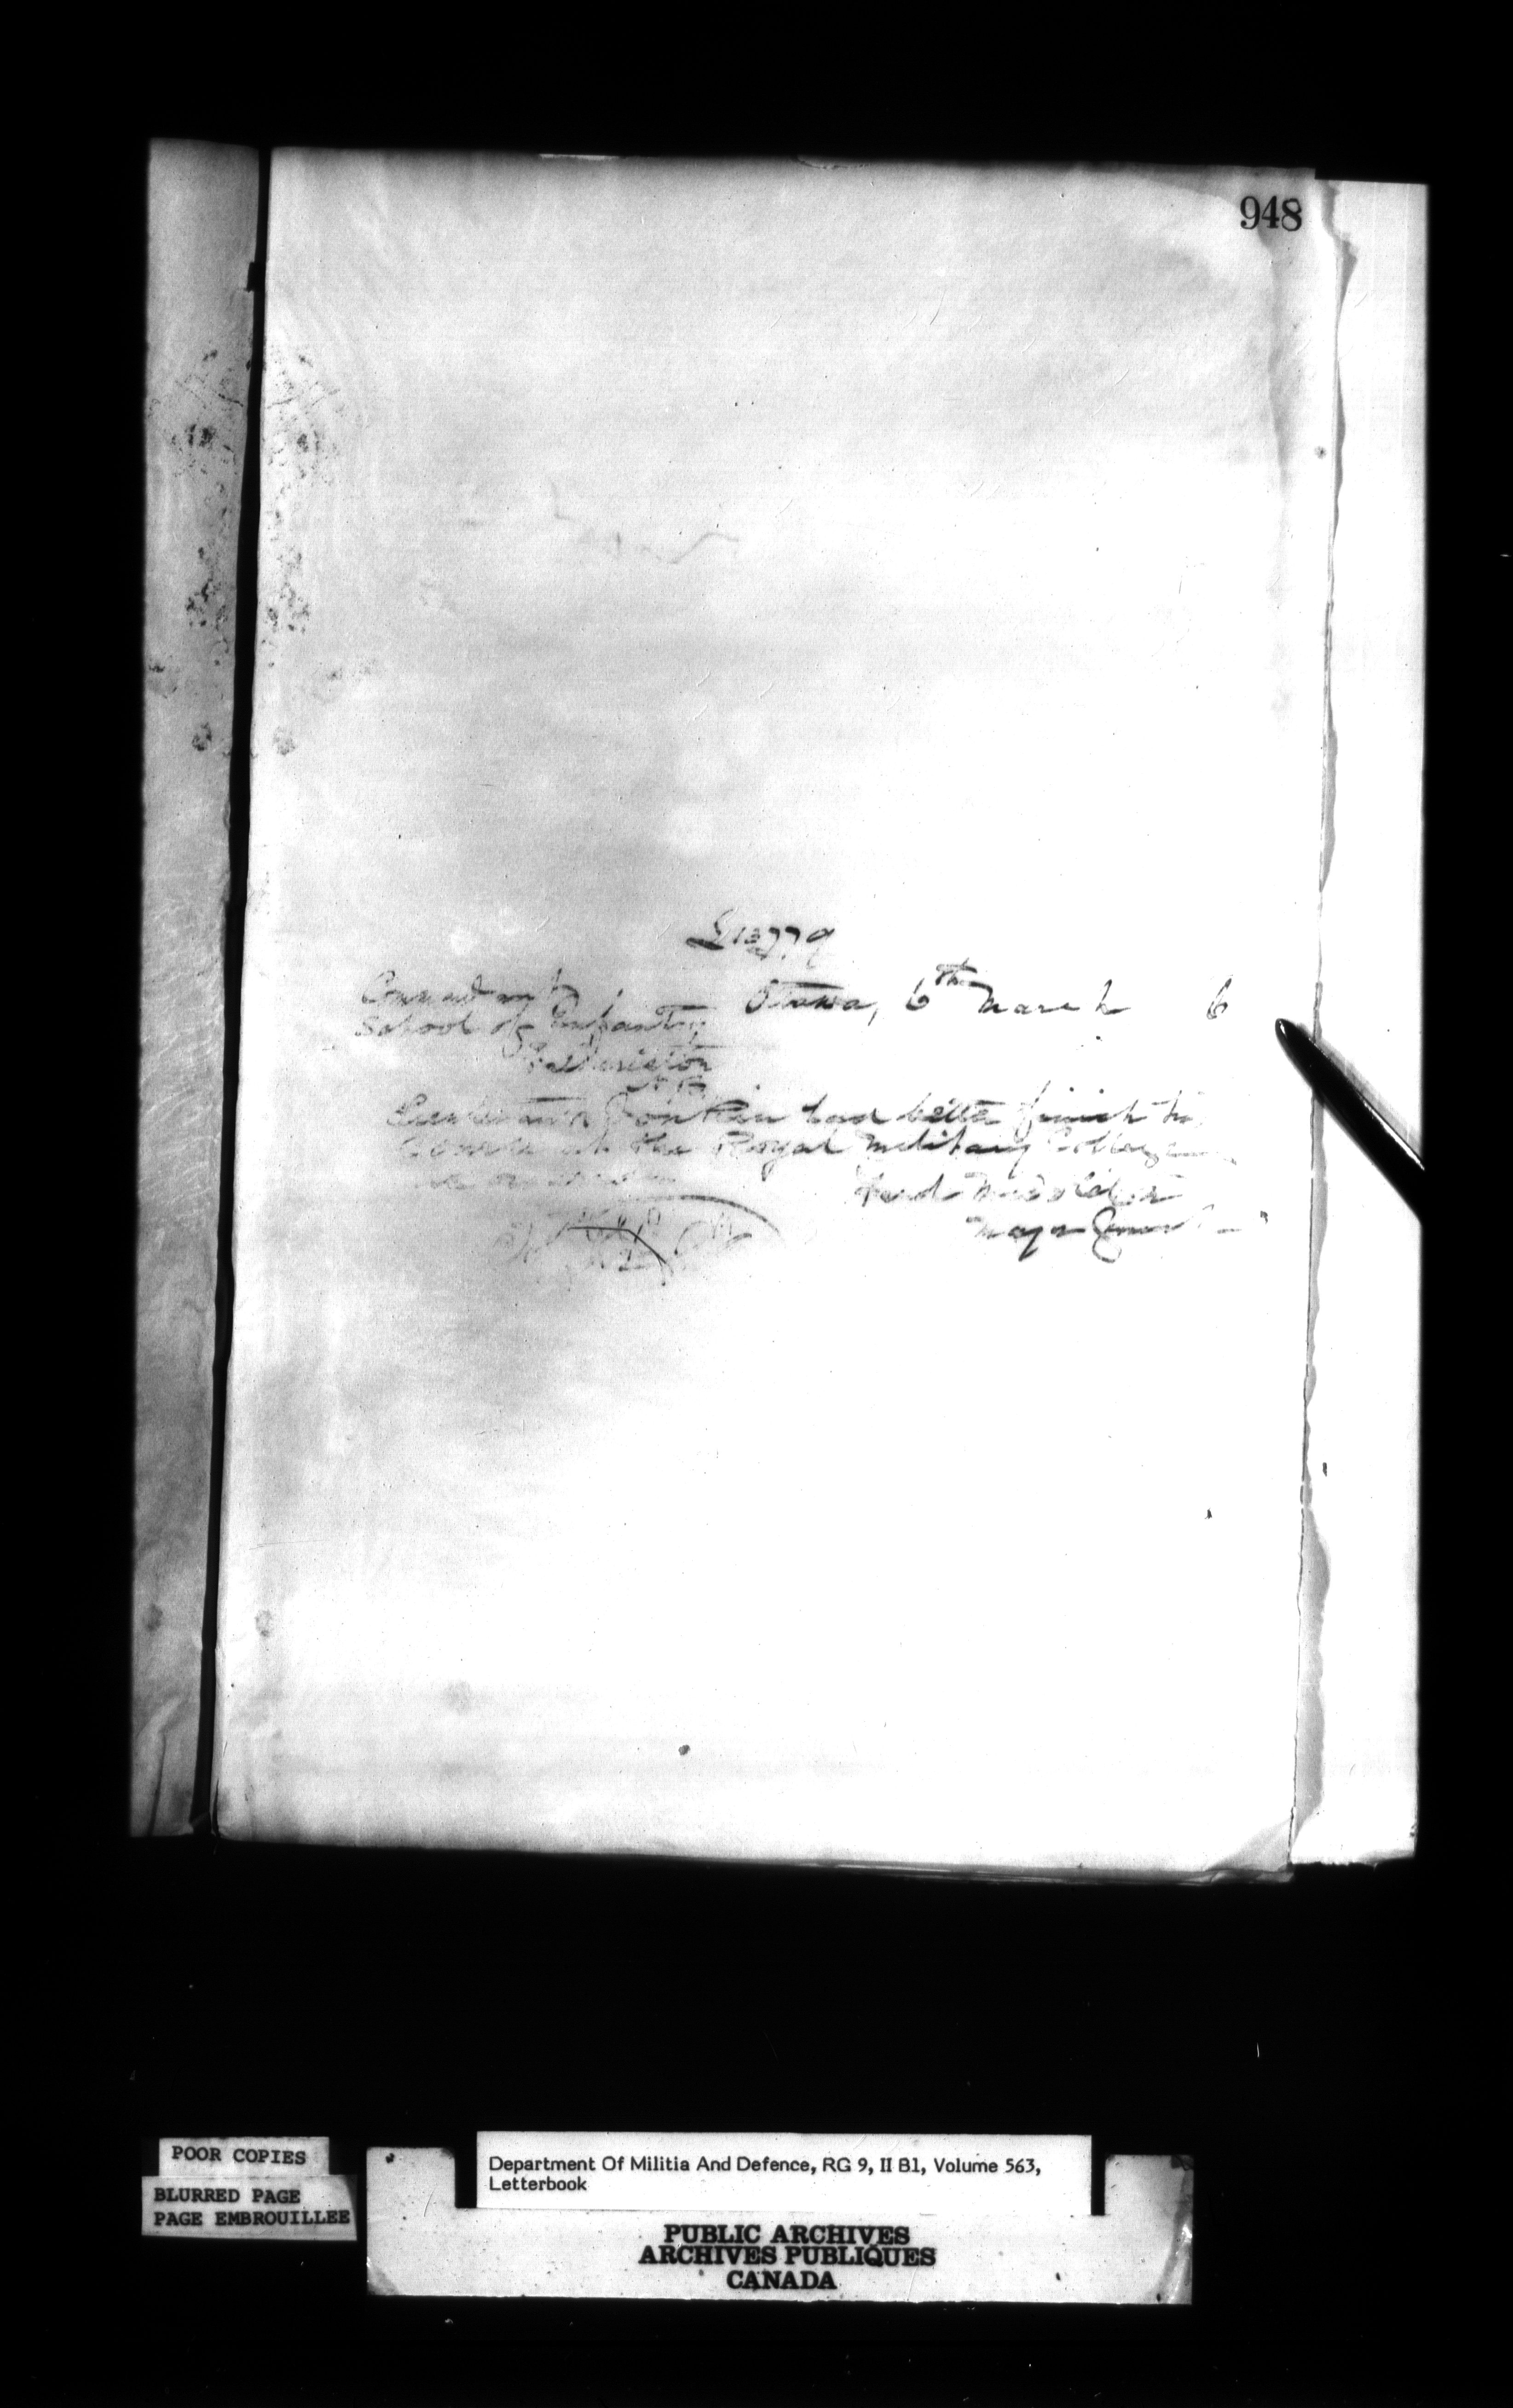 948
13779
Commandant
School of Infantry
Ottawa, 6th March 6
Fredericton
N B
Lieutenant had better finish his
Course at the Royal Military College
Fred Middleton
Major General
POOR COPIES
BLURRED PAGE
PAGE EMBROUILLEE
Department Of Militia And Defence, RG 9, II B1, Volume 563,
Letterbook
PUBLIC ARCHIVES
ARCHIVES PUBLIQUES
CANADA